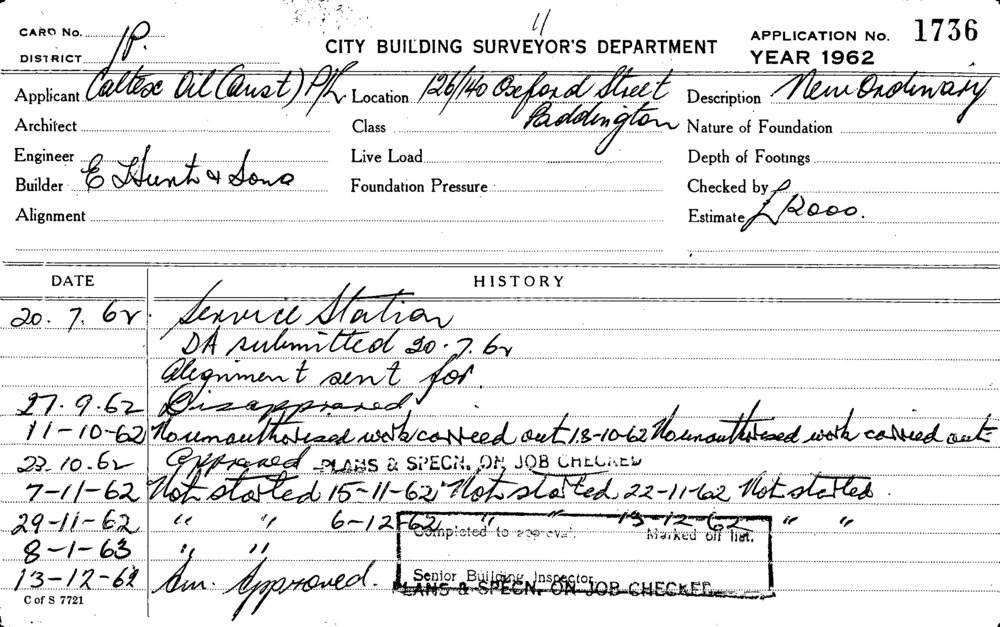 11
CARD No.
DISTRICT 1P.
CITY BUILDING SURVEYOR'S DEPARTMENT
APPLICATION No. 1736
YEAR 1962
Applicant Caltex Oil (Aust) P/L Location 126/140 Oxford Street Description New Ordinary
Paddington
Architect Class Nature of Foundation
Engineer Live Load Depth of Footings
Builder E Hunt & Sons Foundation Pressure Checked by
Alignment Estimate £ 12000.
DATE HISTORY
20. 7. 62. Service Station
DA submitted 20.7.62
Alignment sent for.
27.9.62 Disapproved
11-10-62 No unauthorised work carried out 18-10-62 No unauthorised work carried out
23.10.62 Approved PLANS & SPECN. ON JOB CHECKED
7-11-62 Not started 15-11-62 Not started 22-11-62 Not started.
29-11-62 " " 6-12-62 " " 13-12-62 " "
Completed to approval. Marked off list.
8-1-63 " "
13-12-62 Am. Approved.
Senior Building Inspector
PLANS & SPECN. ON JOB CHECKED
C of S 7721